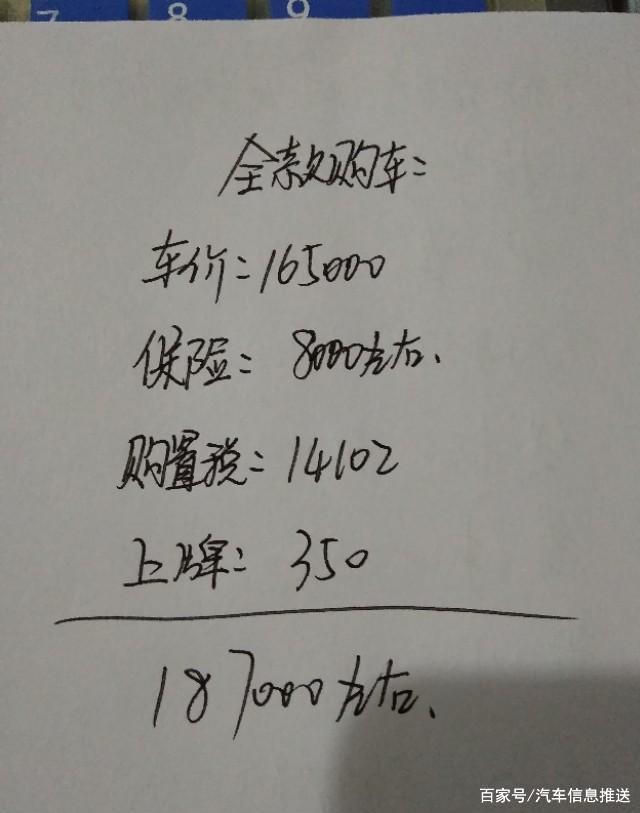 7 8 9
全款购车:
车价:165000
保险: 8000左右、
购置税:14102
上牌: 350
187000左右、
百家号/汽车信息推送